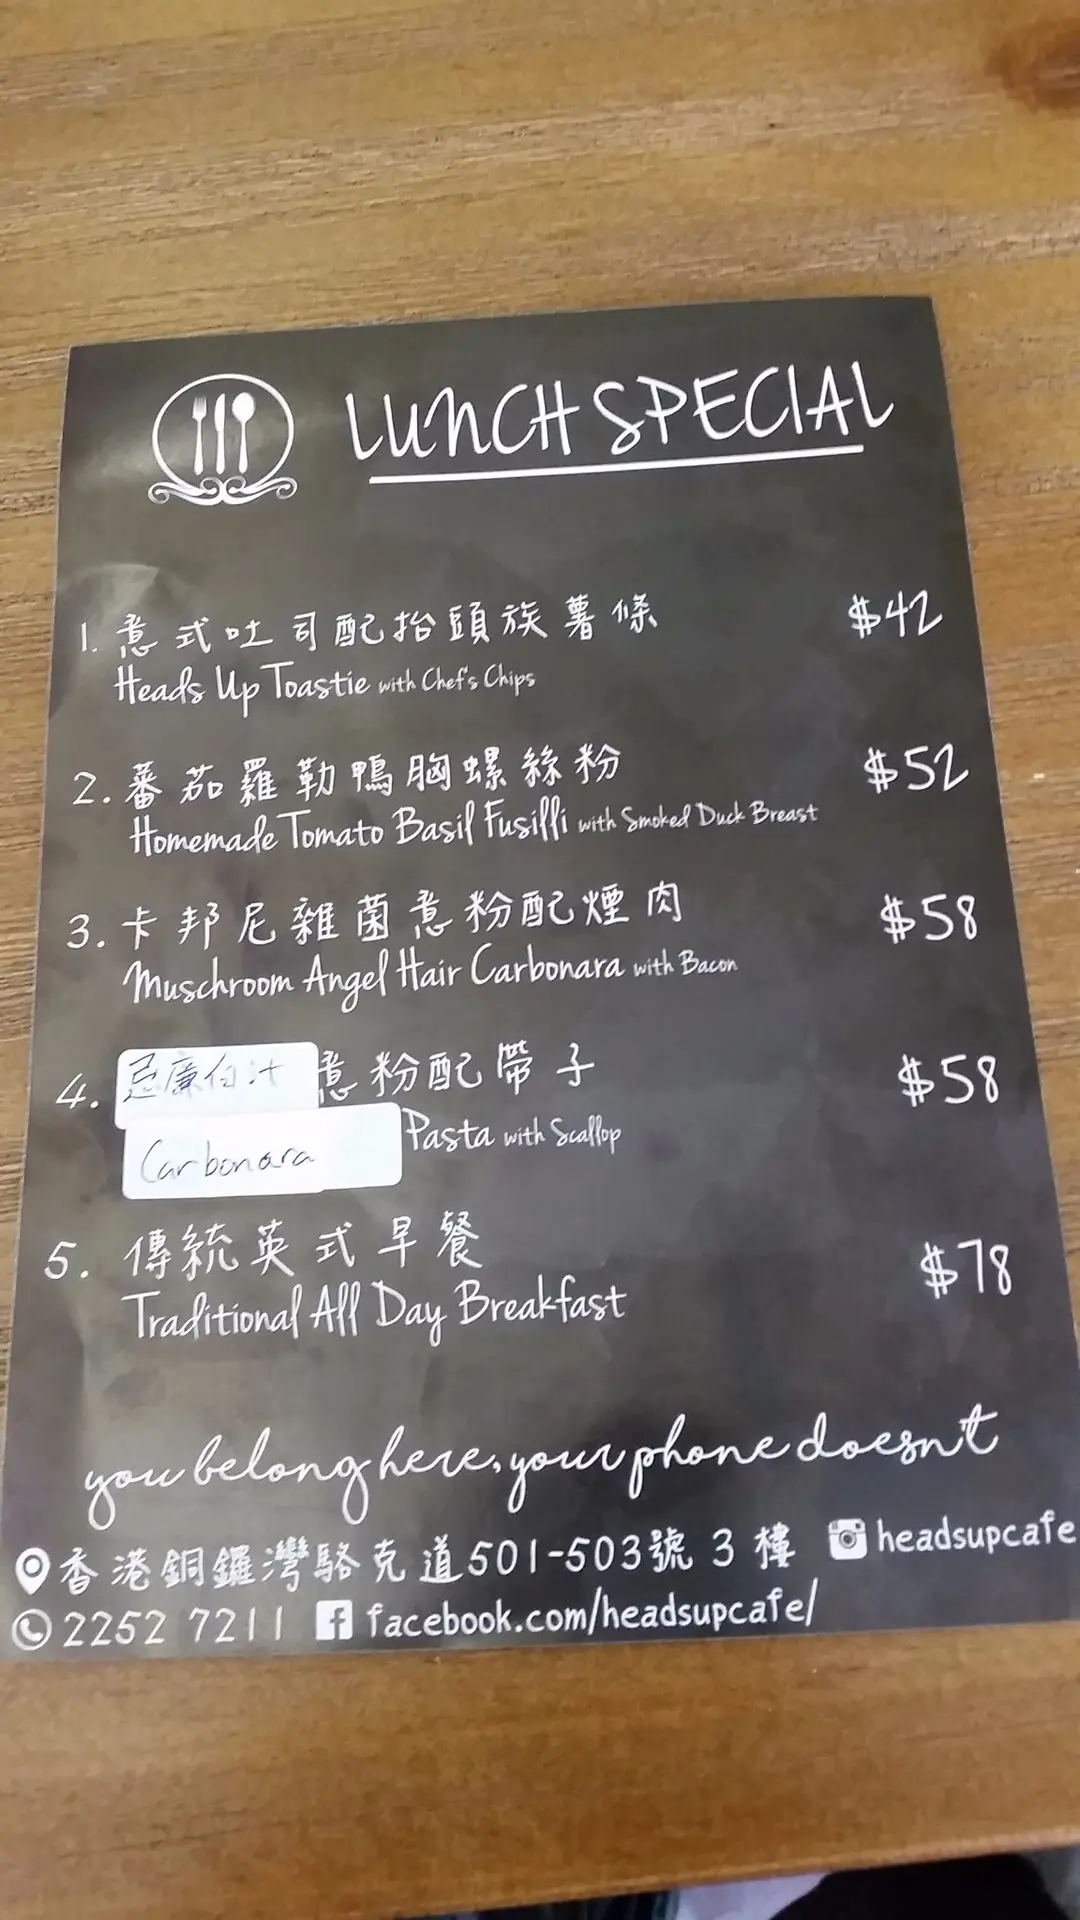 LUNCH SPECIAL
1. 意式吐司配抬頭族薯條 $42
Heads Up Toastie with Chef's Chips
2. 蕃茄羅勒鴨胸螺絲粉 $52
Homemade Tomato Basil Fusilli with Smoked Duck Breast
3. 卡邦尼雜菌意粉配煙肉 $58
Muschroom Angel Hair Carbonara with Bacon
4. 忌廉白汁意粉配帶子 $58
Carbonara Pasta with Scallop
5. 傳統英式早餐 $78
Traditional All Day Breakfast
you belong here, your phone doesn't
香港銅鑼灣駱克道501-503號3樓 headsupcafe
2252 7211 facebook.com/headsupcafe/